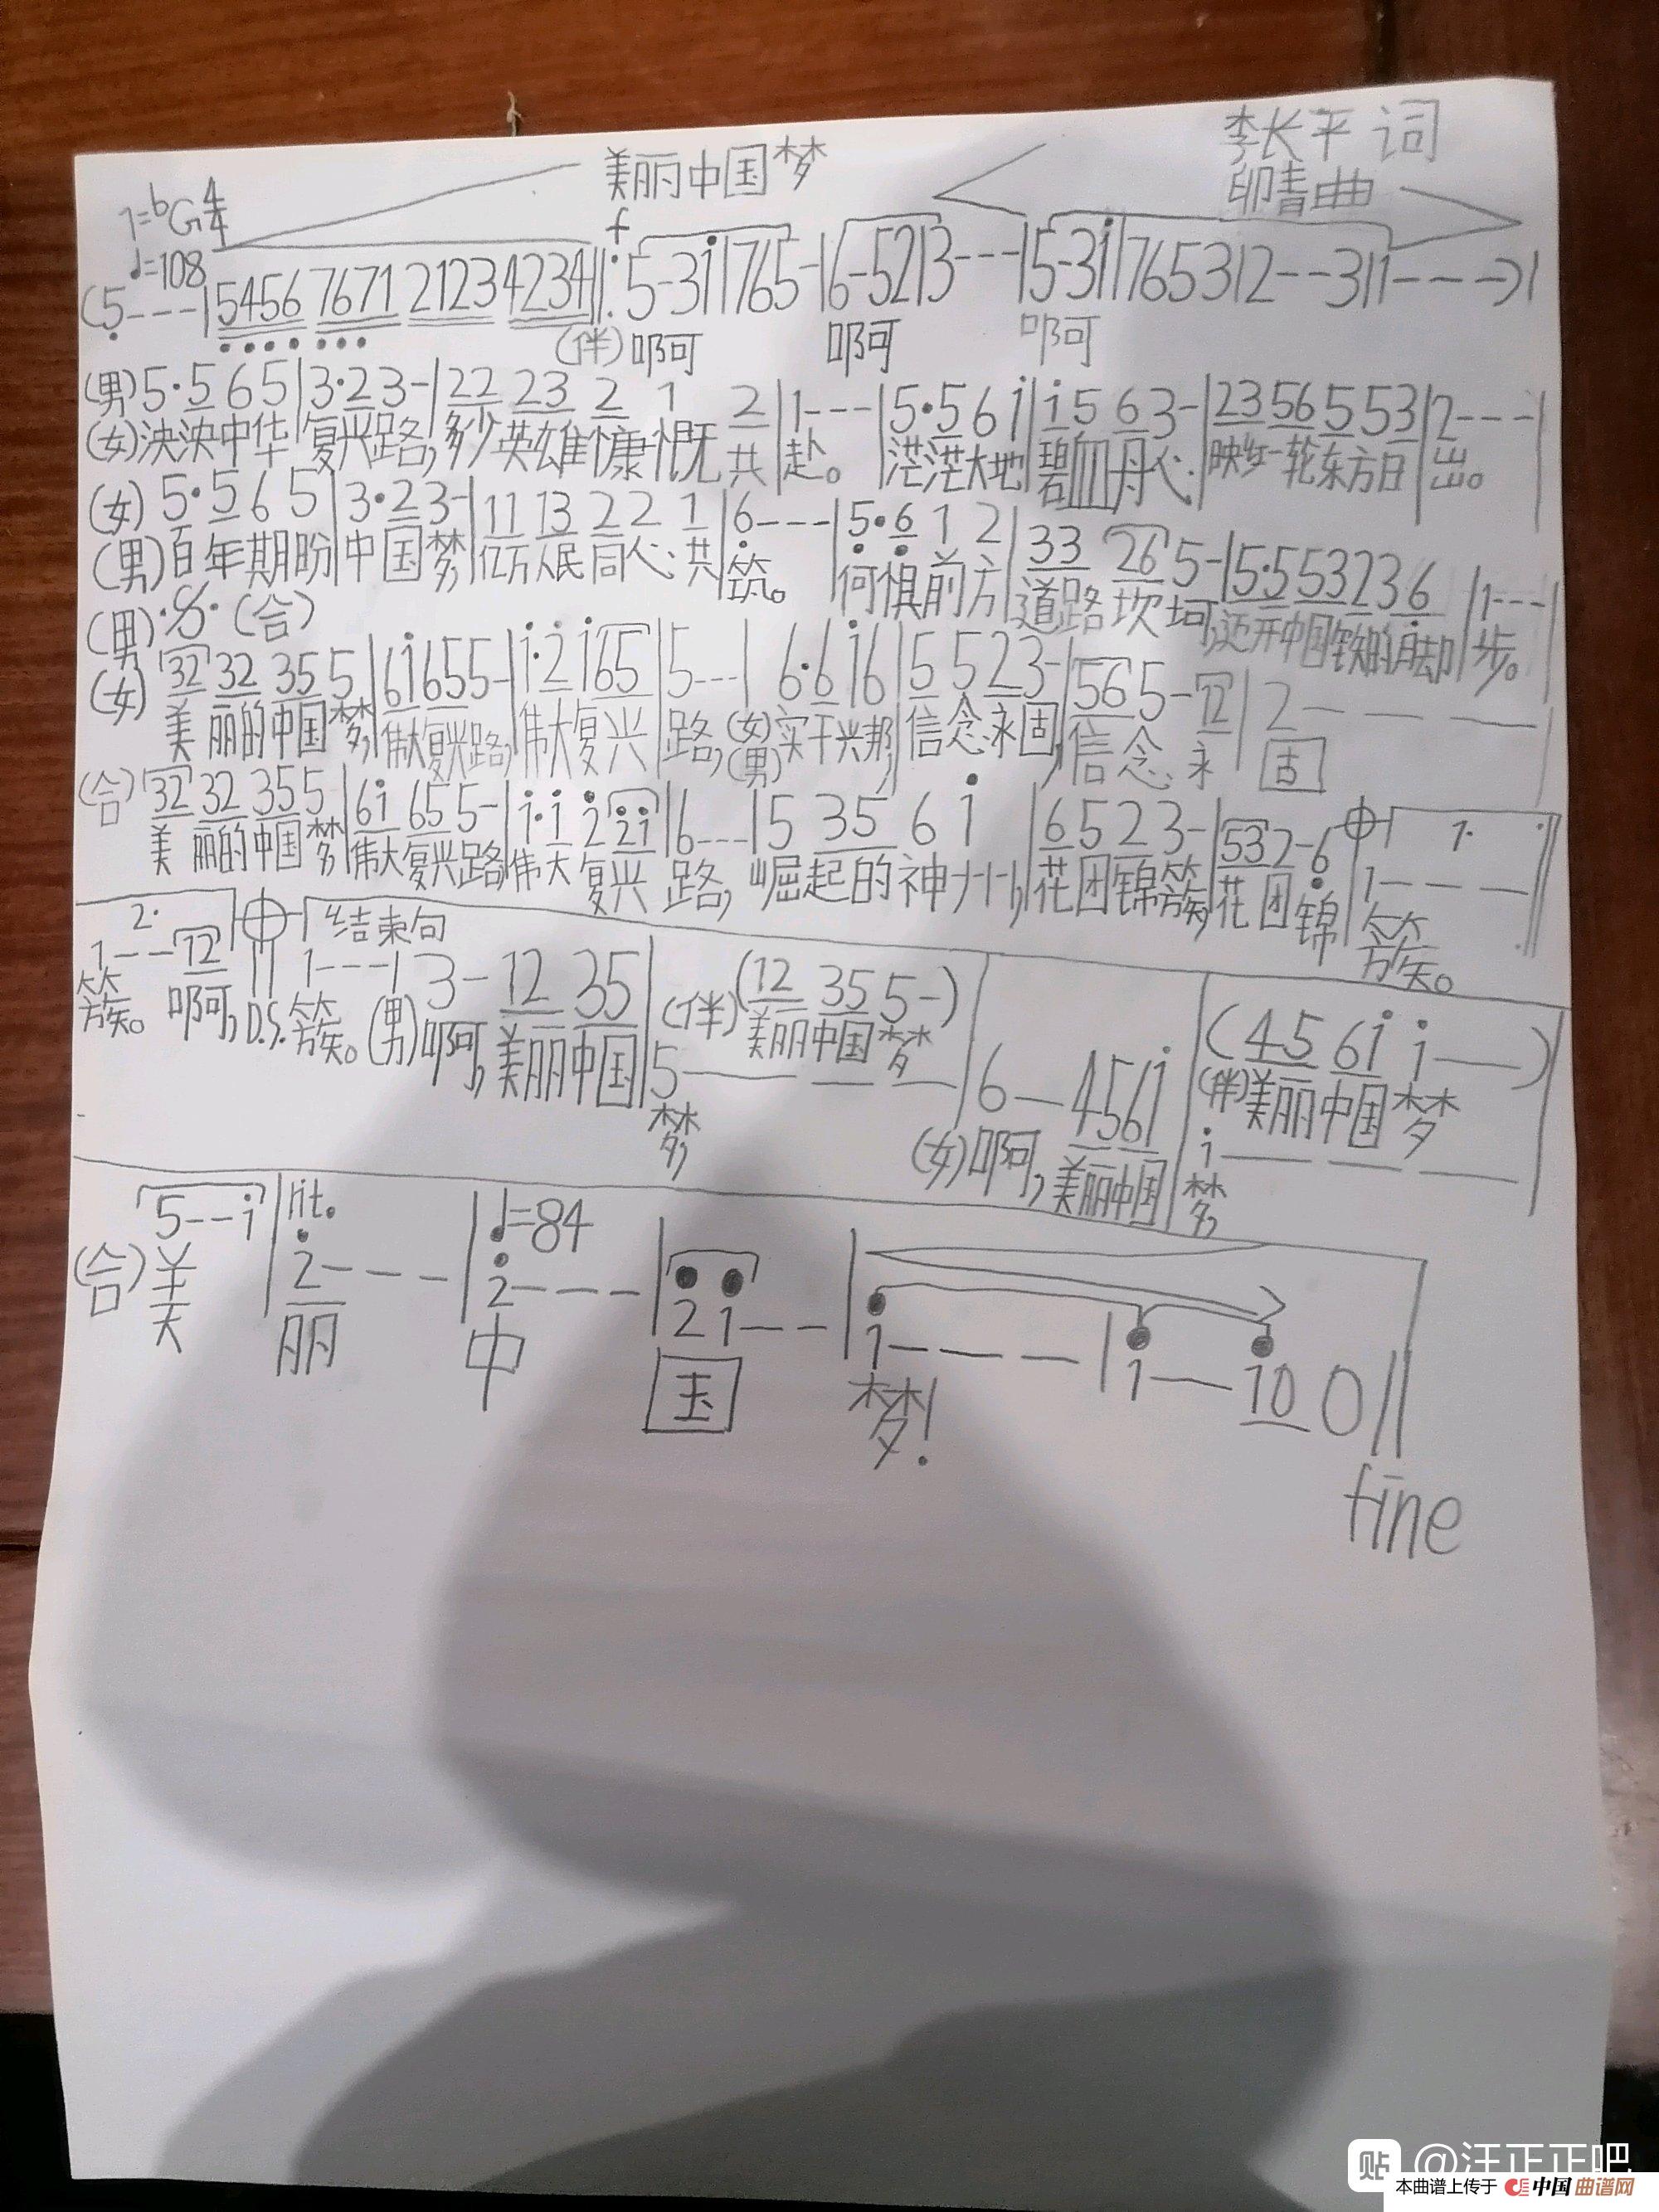 美丽中国梦
李长平 词
印青曲
1=bG 4/4
♩=108
f
(5---|5456 7671 2123 4234‖:5-3i|765-|6-52|3---|5-3i|7653|2--3|1---)|
(伴)啊 啊 啊
(男)5·5 6 5|3·2 3-|22 23 2 1 2|1---|5·5 6 i|i 5 6 3-|23 56 5 53|2---|
(女)泱泱中华 复兴路,多少英雄慷慨共赴。茫茫大地 碧血丹心.映女一轮东方日出。
(女)5·5 6 5|3·2 3-|11 13 2 2 1|6---|5·6 1 2|33 26 5-|5·5 53 23 6|1---|
(男)百年期盼中国梦,亿万人民同心共筑。何惧前方道路坎坷,迈开中国铁的脚步。
(男)·𝄋·(合)
(女)32 32 35 5|6i655-|i·2 i65|5---|6·6 i6|5 5 2 3-|56 5-12|2---
美丽的中国梦,伟大复兴路,伟大复兴路,(女)(男)实干兴邦,信念永固,信念永固
(合)32 32 35 5|6i 65 5-|i·i 2 2i|6---|5 35 6 i|6 5 2 3-|53 2-6|1---
1.
美丽的中国梦伟大复兴路伟大复兴路,崛起的神州,花团锦簇,花团锦簇。
2.
结束句
1--12‖1---|3-12 35|(伴)(12 35 5-)
美丽中国梦
5---|6-456i|(45 6i i--)
(伴)美丽中国梦
i---
簇。啊,D.S.簇。(男)啊,美丽中国梦,(女)啊,美丽中国梦,
5--i|rit. 2---|♩=84 2---|2 1--|1---|1--10 0‖
(合)美丽中国梦!
fine
贴 @汪正正吧
本曲谱上传于 中国曲谱网